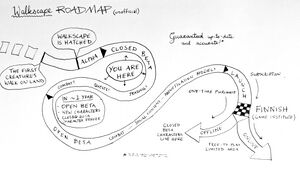 Walkscape ROADMAP (unofficial)
Guaranteed up-to-date
and accurate!*
WALKSCAPE
IS HATCHED
THE FIRST
CREATURES
WALK ON LAND
ALPHA
CLOSED
BETA
YOU ARE
HERE
COMBAT
QUESTS
TRADING?
IN ~1 YEAR
OPEN BETA
NEW CHARACTERS
CLOSED BETA
CHARACTER
OPEN BETA
COMBAT
MONETIZATION MODEL?
SUBSCRIPTION
ONE-TIME PURCHASE
LAUNCH
FINNISH
(GAME INSTITUTE)
CLOSED
BETA
CHARACTERS
LIVE HERE
OFFLINE
ONLINE
FREE-TO-PLAY
LIMITED AREA